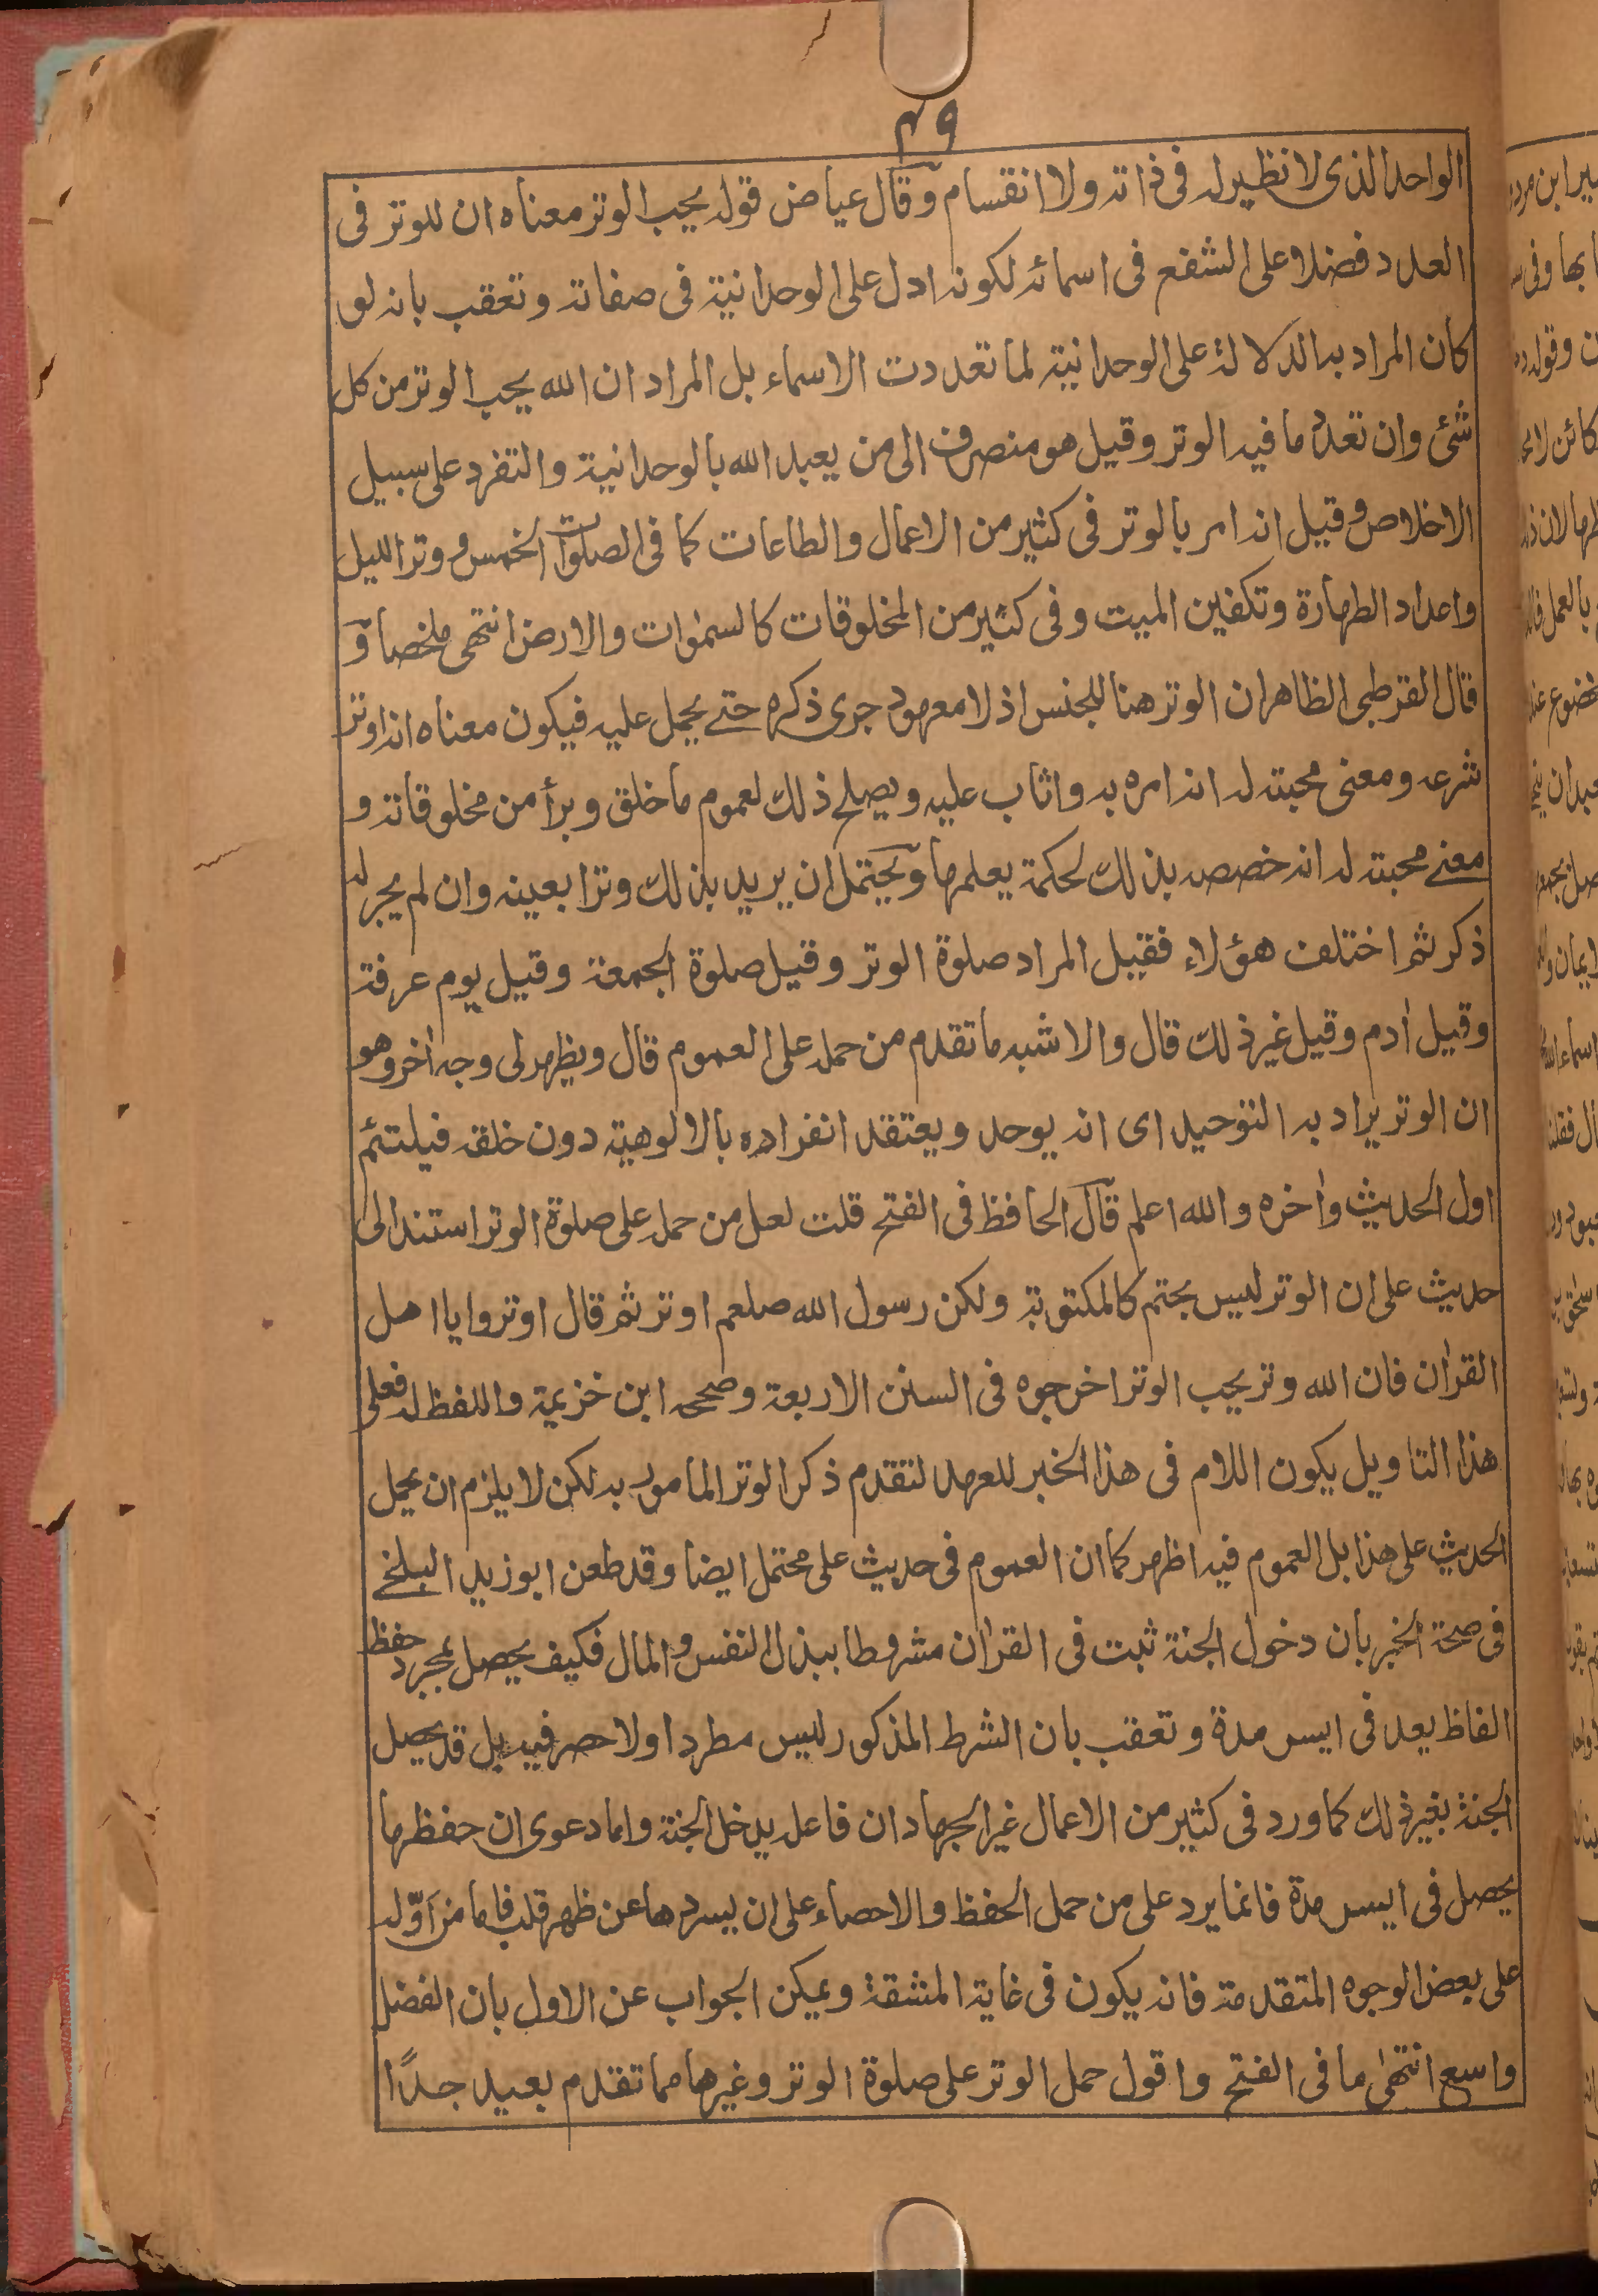 ٤٩
الواحد الذى لا نظير له فى ذاته ولا انقسام وقال عياض قوله يحب الوتر معناه ان للوتر فى
العدد فضلا على الشفع فى اسمائه لكونه ادل على الوحدانية فى صفاته وتعقب بانه لو
كان المراد به الدلالة على الوحدانية لما تعددت الاسماء بل المراد ان الله يحب الوتر من كل
شئ وان تعدد ما فيه الوتر وقيل هو منصرف الى من يعبد الله بالوحدانية والتفرد على سبيل
الاخلاص وقيل انه امر بالوتر فى كثير من الاعمال والطاعات كما فى الصلوات الخمس ووتر الليل
واعداد الطهارة وتكفين الميت وفى كثير من المخلوقات كالسمٰوات والارض انتهى ملخصا و
قال القرطبى الظاهر ان الوتر هنا للجنس اذ لا معهود جرى ذكره حتے يحمل عليه فيكون معناه انه اوتر
شرعه ومعنى محبته له انه امره به واثاب عليه ويصلح ذلك لعموم ما خلق وبرأ من مخلوقاته و
معنے محبته له انه خصصه بذلك لحكمة يعلمها ويحتمل ان يريد بذلك وترا بعينه وان لم يجر له
ذكر ثم اختلف هؤلاء فقيل المراد صلوة الوتر وقيل صلوة الجمعة وقيل يوم عرفة
وقيل اٰدم وقيل غير ذلك قال والاشبه ما تقدم من حمله على العموم قال ويظهر لى وجه اٰخر وهو
ان الوتر يراد به التوحيد اى انه يوحد ويعتقد انفراده بالالوهية دون خلقه فيلتئم
اول الحديث واٰخره والله اعلم قال الحافظ فى الفتح قلت لعل من حمله على صلوة الوتر استند الى
حديث على ان الوتر ليس بحتم كالمكتوبة ولكن رسول الله صلعم اوتر ثم قال اوتروا يا اهل
القراٰن فان الله وتر يحب الوتر اخرجوه فى السنن الاربعة وصححه ابن خزيمة واللفظ له فعلى
هذا التاويل يكون اللام فى هذا الخبر للعهد لتقدم ذكر الوتر المامور به لكن لا يلزم ان يحمل
الحديث على هذا بل العموم فيه اظهر كما ان العموم فى حديث على محتمل ايضا وقد طعن ابو زيد البلخے
فى صحة الخبر بان دخول الجنة ثبت فى القراٰن مشروطا ببذل النفس والمال فكيف يحصل بمجرد حفظ
الفاظ يعد فى ايسر مدة وتعقب بان الشرط المذكور ليس مطردا ولا حصر فيه بل قد يحصل
الجنة بغير ذلك كما ورد فى كثير من الاعمال غير الجهاد ان فاعله يدخل الجنة واما دعوى ان حفظها
يحصل فى ايسر مدة فانما يرد على من حمل الحفظ والاحصاء على ان يسردها عن ظهر قلب فاما من اَوّله
على بعض الوجوه المتقدمة فانه يكون فى غاية المشقة ويمكن الجواب عن الاول بان الفضل
واسع انتهٰى ما فى الفتح واقول حمل الوتر على صلوة الوتر وغيرها مما تقدم بعيد جدًا